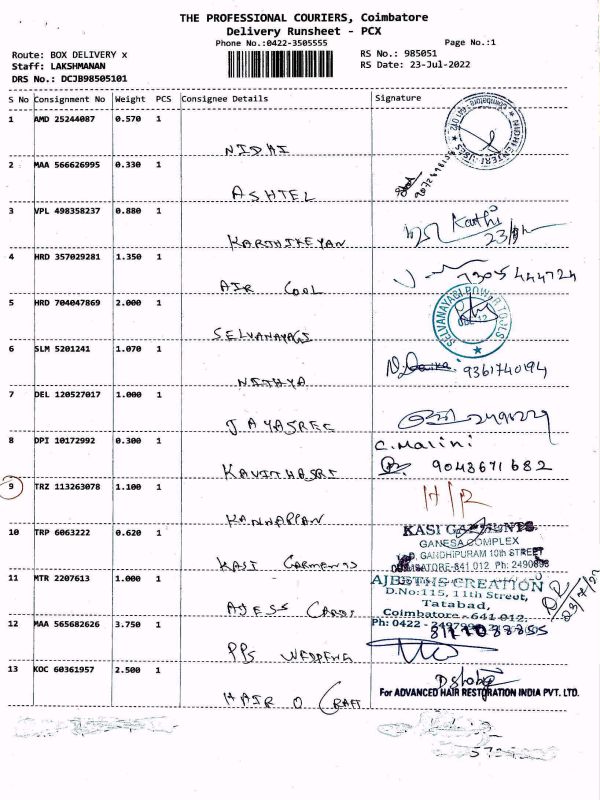 THE PROFESSIONAL COURIERS, Coimbatore
Delivery Runsheet - PCX
Phone No.:0422-3505555
Page No.:1
Route: BOX DELIVERY x
RS No.: 985051
Staff: LAKSHMANAN
RS Date: 23-Jul-2022
DRS No.: DCJB98505101
S No Consignment No Weight PCS Consignee Details Signature
1 AMD 25244087 0.570 1
NIDHI
2 MAA 566626995 0.330 1
ASHTEL
3 VPL 498358237 0.880 1
KARTHIKEYAN Karthi
4 HRD 357029281 1.350 1
AIR COOL 7305444724
5 HRD 704047869 2.000 1
SELVANAYAGI SELVANAYAGI POWER TOOLS
6 SLM 5201241 1.070 1
NITHYA 9361740194
7 DEL 120527017 1.000 1
JAYASREE
8 DPI 10172992 0.300 1 C. Malini
KAVITHASRI 9043671682
9 TRZ 113263078 1.100 1
KANNAPPAN
10 TRP 6063222 0.620 1 KASI GARMENTS
GANESA COMPLEX
GANDHIPURAM 10th STREET
KASI GARMENTS COIMBATORE-641 012. Ph: 2490898
11 MTR 2207613 1.000 1 CREATION
D.No:115, 11th Street,
Tatabad,
AJESS CARDS Coimbatore - 641 012.
12 MAA 565682626 3.750 1 Ph: 0422 -
PPS
13 KOC 60361957 2.500 1
HAIR O CRAFT For ADVANCED HAIR RESTORATION INDIA PVT. LTD.